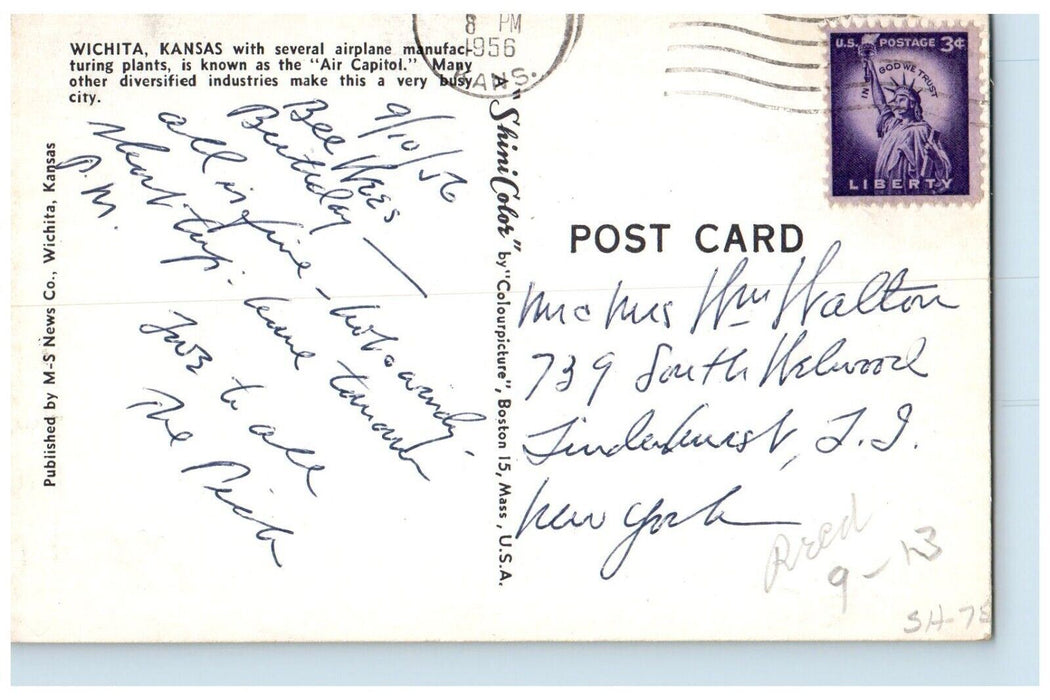 WICHITA, KANSAS with several airplane manufac-
turing plants, is known as the "Air Capitol." Many
other diversified industries make this a very busy
city.
8 PM
1956
KANS.
U.S. POSTAGE 3¢
IN GOD WE TRUST
LIBERTY
9/10/56
Bee Wees
Birthday —
all is fine - hot & windy.
short trip. leave tomorrow
P.M.
Love to all
The
Published by M-S News Co., Wichita, Kansas
"ShiniColor" by "Colourpicture", Boston 15, Mass., U.S.A.
POST CARD
Mr & Mrs Wm Walton
739 South Welwood
Lindenhurst, L.I.
New York
Rec'd
9-13
SH-78